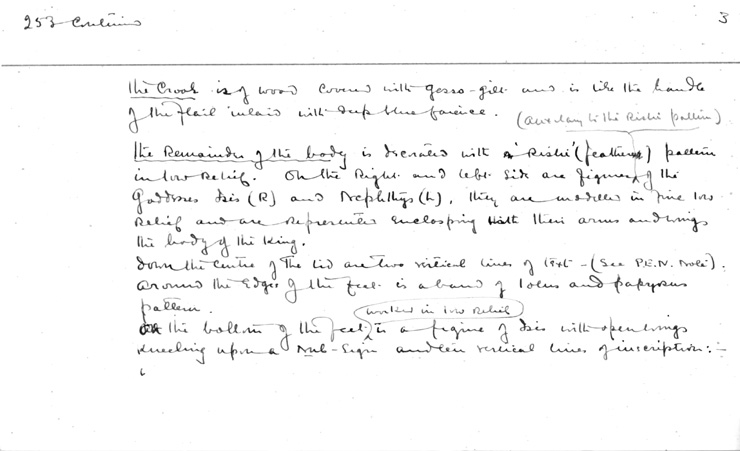 253 Continued 3
The Crook is of wood covered with gesso-gilt and is like the handle
of the flail inlaid with deep blue faience.
(according to the Rishi pattern)
The Remainder of the body is decorated with a 'Rishi' (feathered) pattern
in low Relief. On the Right and left side are figures of the
Goddesses Isis (R) and Nephthys (L), they are modelled in fine low
Relief and are represented enclasping with their arms and wings
the body of the King.
Down the centre of the lid are two vertical lines of text - (See P.E.N. Note).
Around the edges of the feet is a band of lotus and papyrus
pattern.
(worked in low relief)
On the bottom of the feet is a figure of Isis with open wings
kneeling upon a Nub-Sign and ten vertical lines of inscription:-